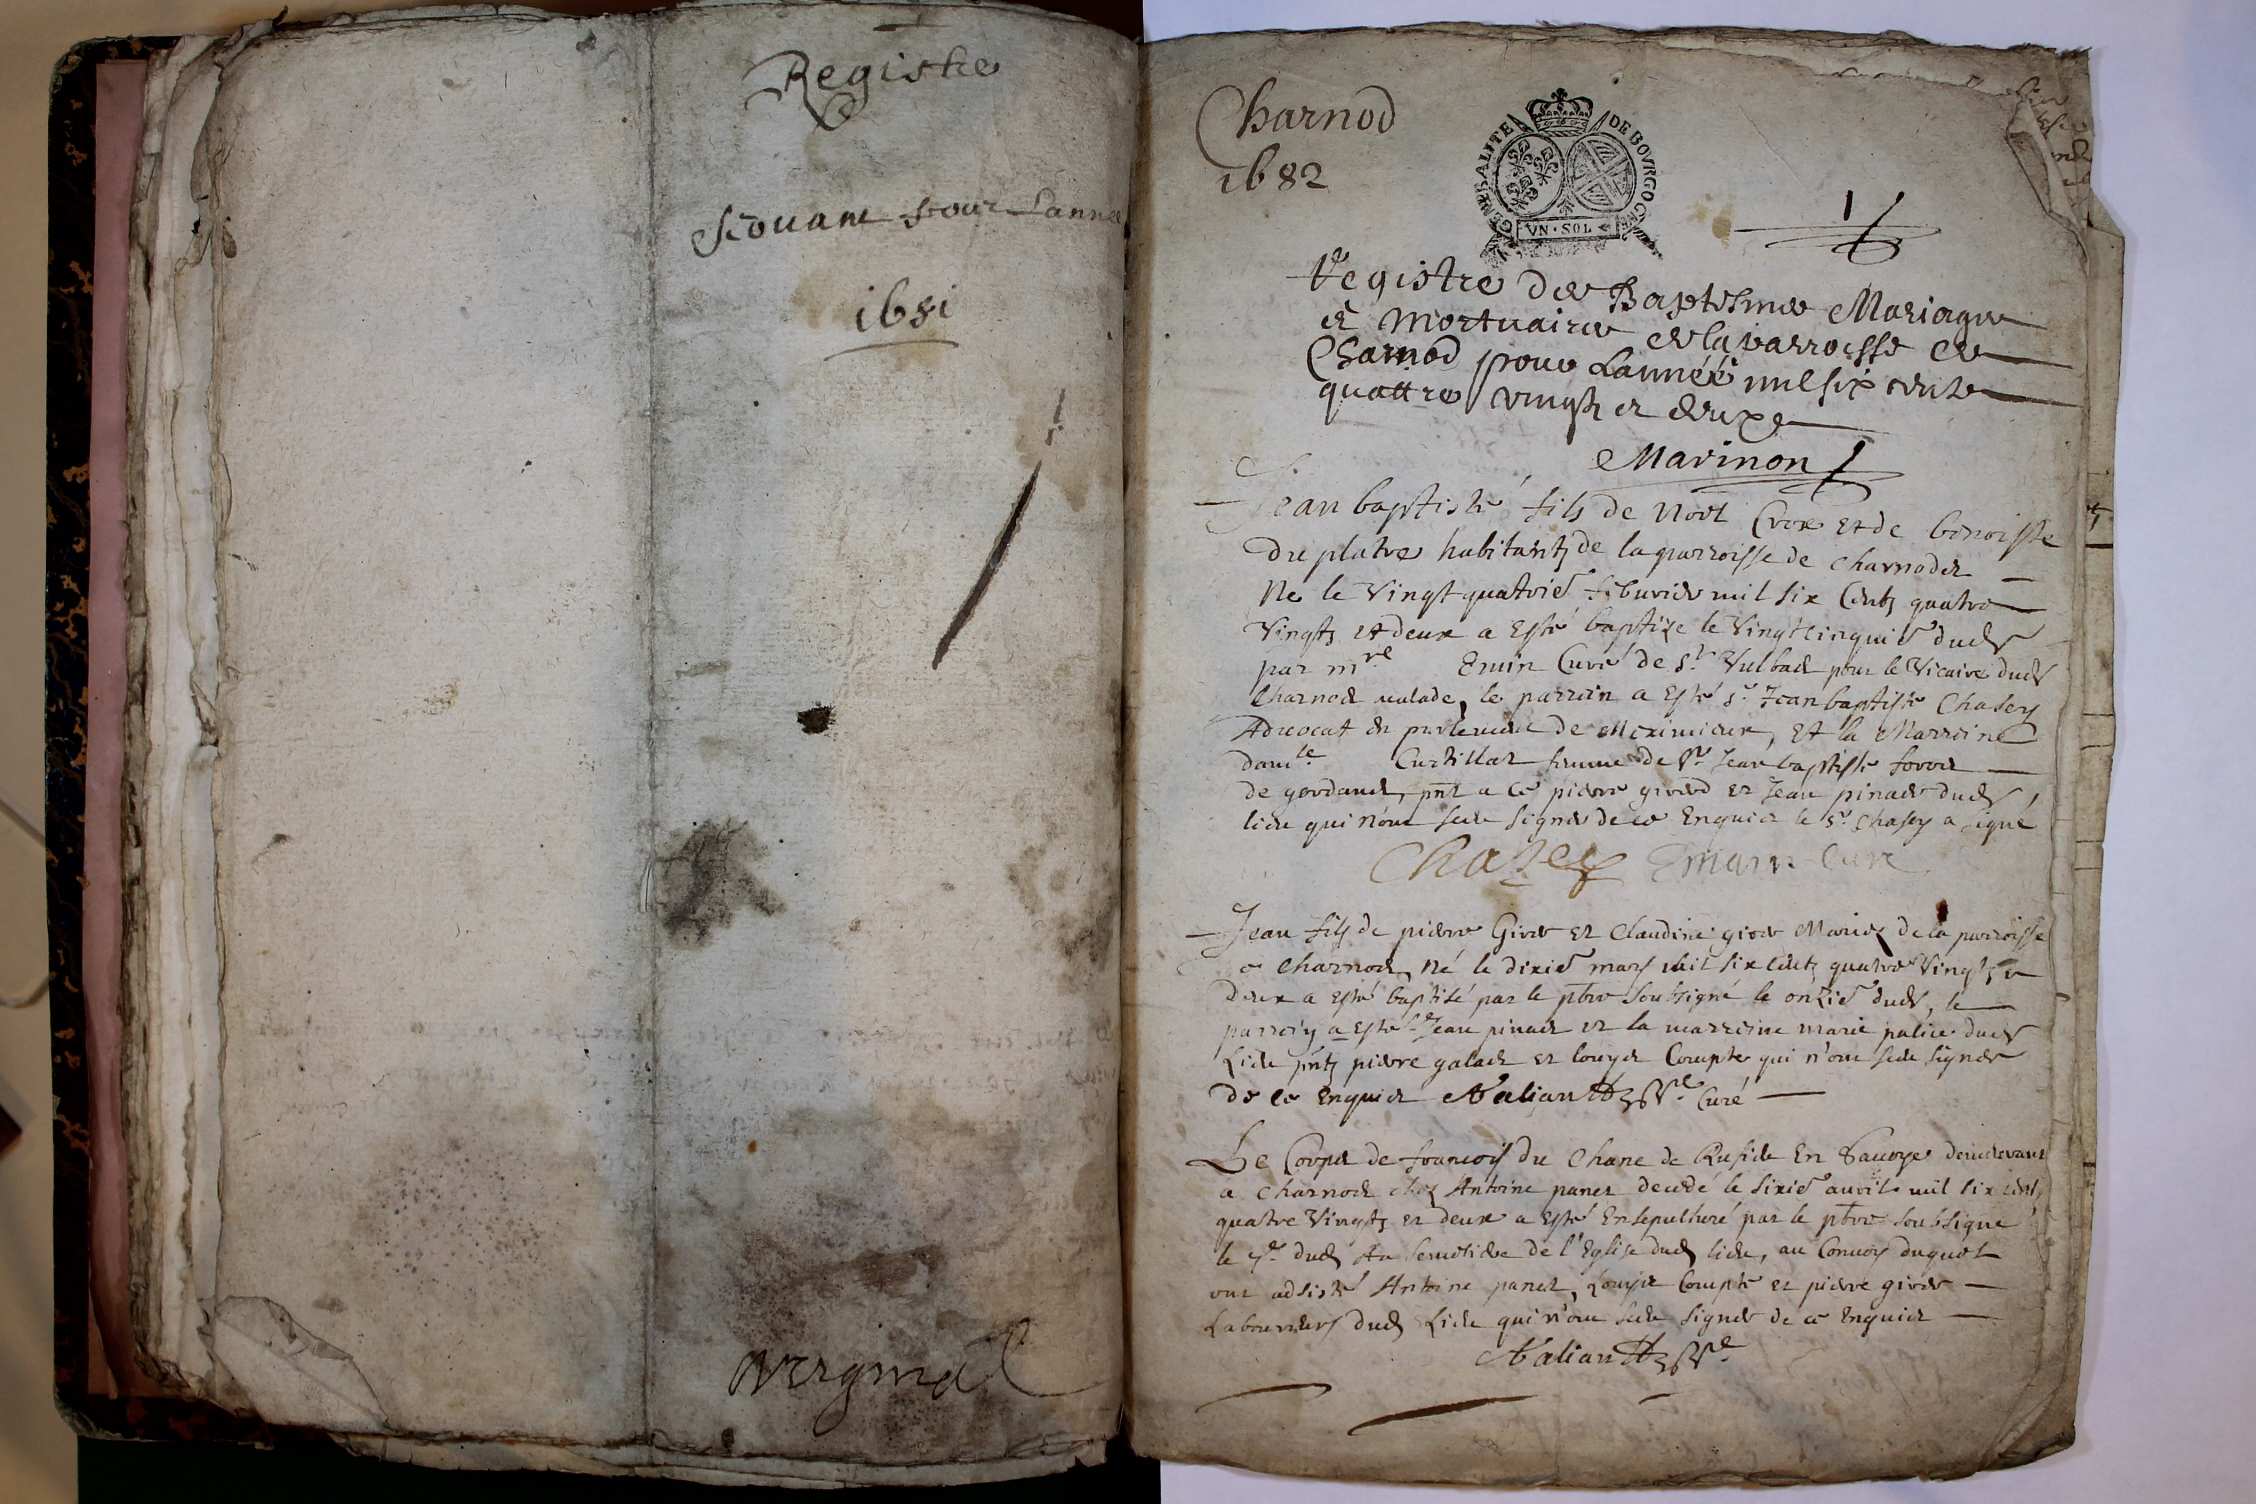 Registre
servant pour Lannee
1681
Charnod
1682
GENERALITE DE BOURGOGNE
VN · SOL
1
Registre des Baptesmes Mariages
et Mortuaires de la parroisse de
Charnod pour Lannéé mil six centz
quattre vingtz et deux
Marinon
Jean baptiste fils de Noel Crox et de benoiste
du platre habitantz de la parroisse de charnodz
Ne le Vingt quatrie febvrier mil six Centz quatre
Vingtz et deux a Esté baptize le Vingtcinquie dud
par mre Emin Curé de St Vulbad pour le Vicaire dud
Charnod malade, le parrin a Esté sr Jean baptiste Chasey
Advocat en parlement de Meximieux, Et la Marrine
damle Curtillat femme de sr Jean baptiste
de gourdand, pnt a ce pierre girerd et Jean pinad dud
lieu qui n'ont sceu signer de ce Enquis le sr Chasey a signé
Chazey Emain Curé
Jean fils de pierre Girer et Claudine girer Mariez de la parroisse
e Charnod, Né le dixie mars mil six Centz quatre Vingtz et
deux a esté baptisé par le pbre soubsigné le onzie dud, le
parrein a esté Jean pinad et la marreine marie palice dud
Lieu pntz pierre galad et louys Compte qui n'ont sceu signer
de ce Enquis Curé
Le Corps de francois du Chane de En Savoye demeurant
a Charnod chez Antoine panet decedé le sixie avril mil six centz
quatre Vingtz et deux a esté Ensepulturé par le pbre soubsigné
le 7e dud Au Semetiere de l'Eglise dud lieu, au Convoy duquel
ont adsisté Antoine panet, Louys Compte et pierre girer
Laboureurs dud Lieu qui n'ont sceu signer de ce Enquis